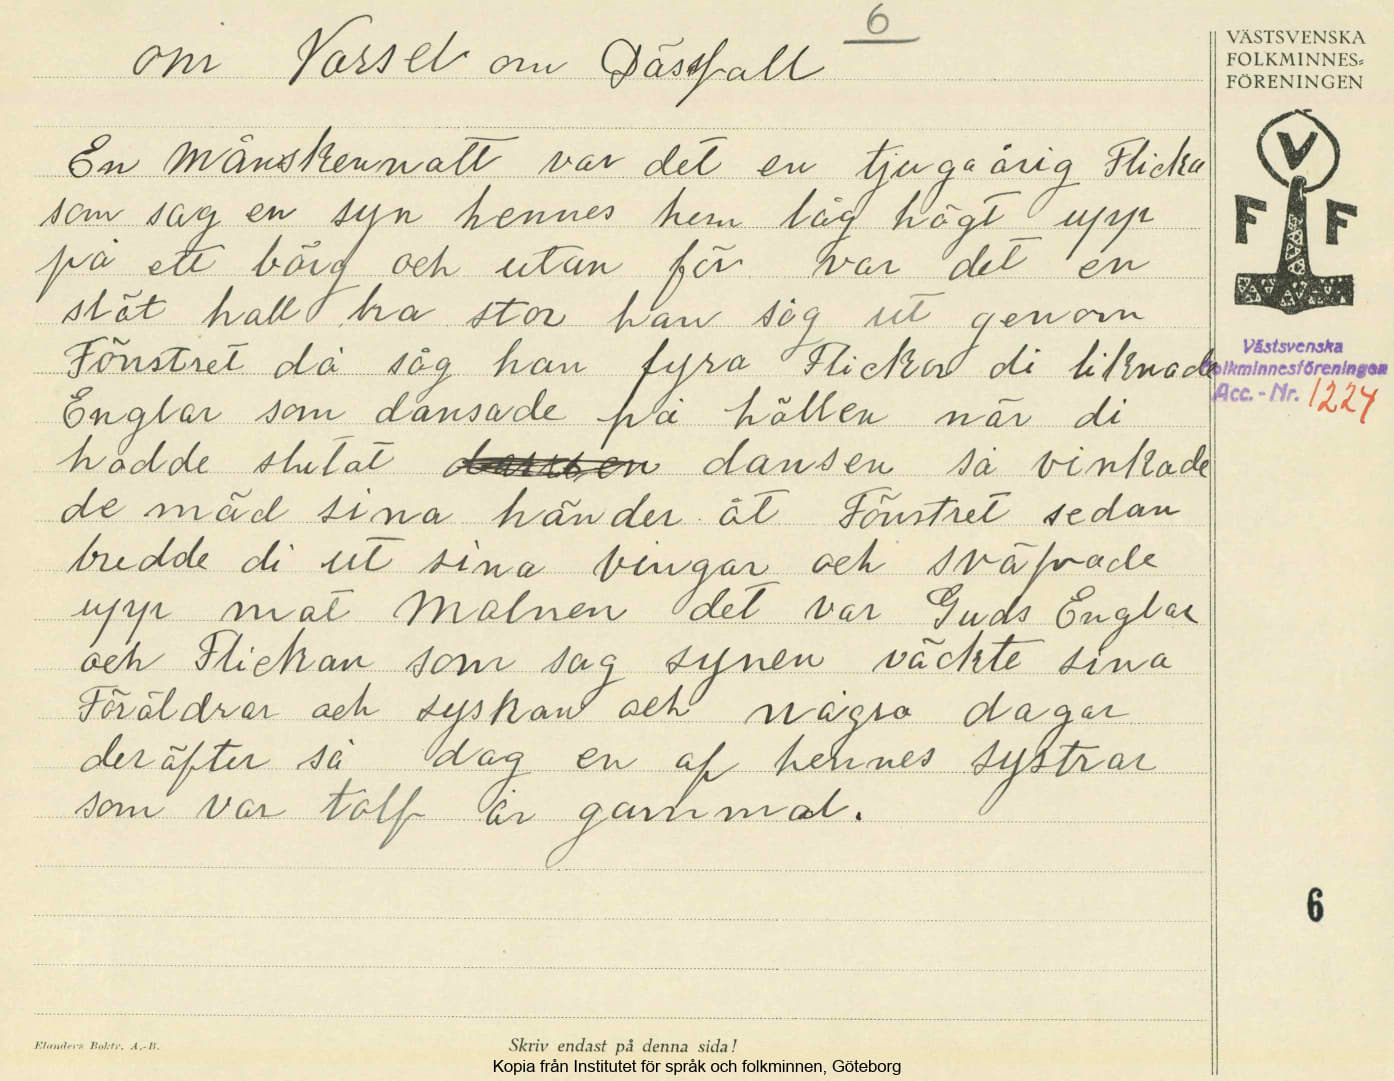 6
om Varsel om Dässfall
VÄSTSVENSKA
FOLKMINNES-
FÖRENINGEN
V
F F
En Månskennatt var det en tjugaårig Flicka
som sag en syn hennes hem låg högt upp
på ett bärg och utan för var det en
slät hall bra stor han såg ut genom
Fönstret då såg han fyra Flickor di liknade
Englar som dansade på hällen när di
hadde slutat dansen så vinkade
de mäd sina händer åt Fönstret sedan
bredde di ut sina vingar och sväfvade
upp mat Molnen det var Guds Englar
och Flickan som sag synen väckte sina
Föräldrar och syskan och några dagar
deräfter så dog en af hennes systrar
som var tolf år gammal.
Västsvenska
Folkminnesföreningen
Acc. - Nr. 1224
6
Elanders Boktr. A.-B.
Skriv endast på denna sida!
Kopia från Institutet för språk och folkminnen, Göteborg